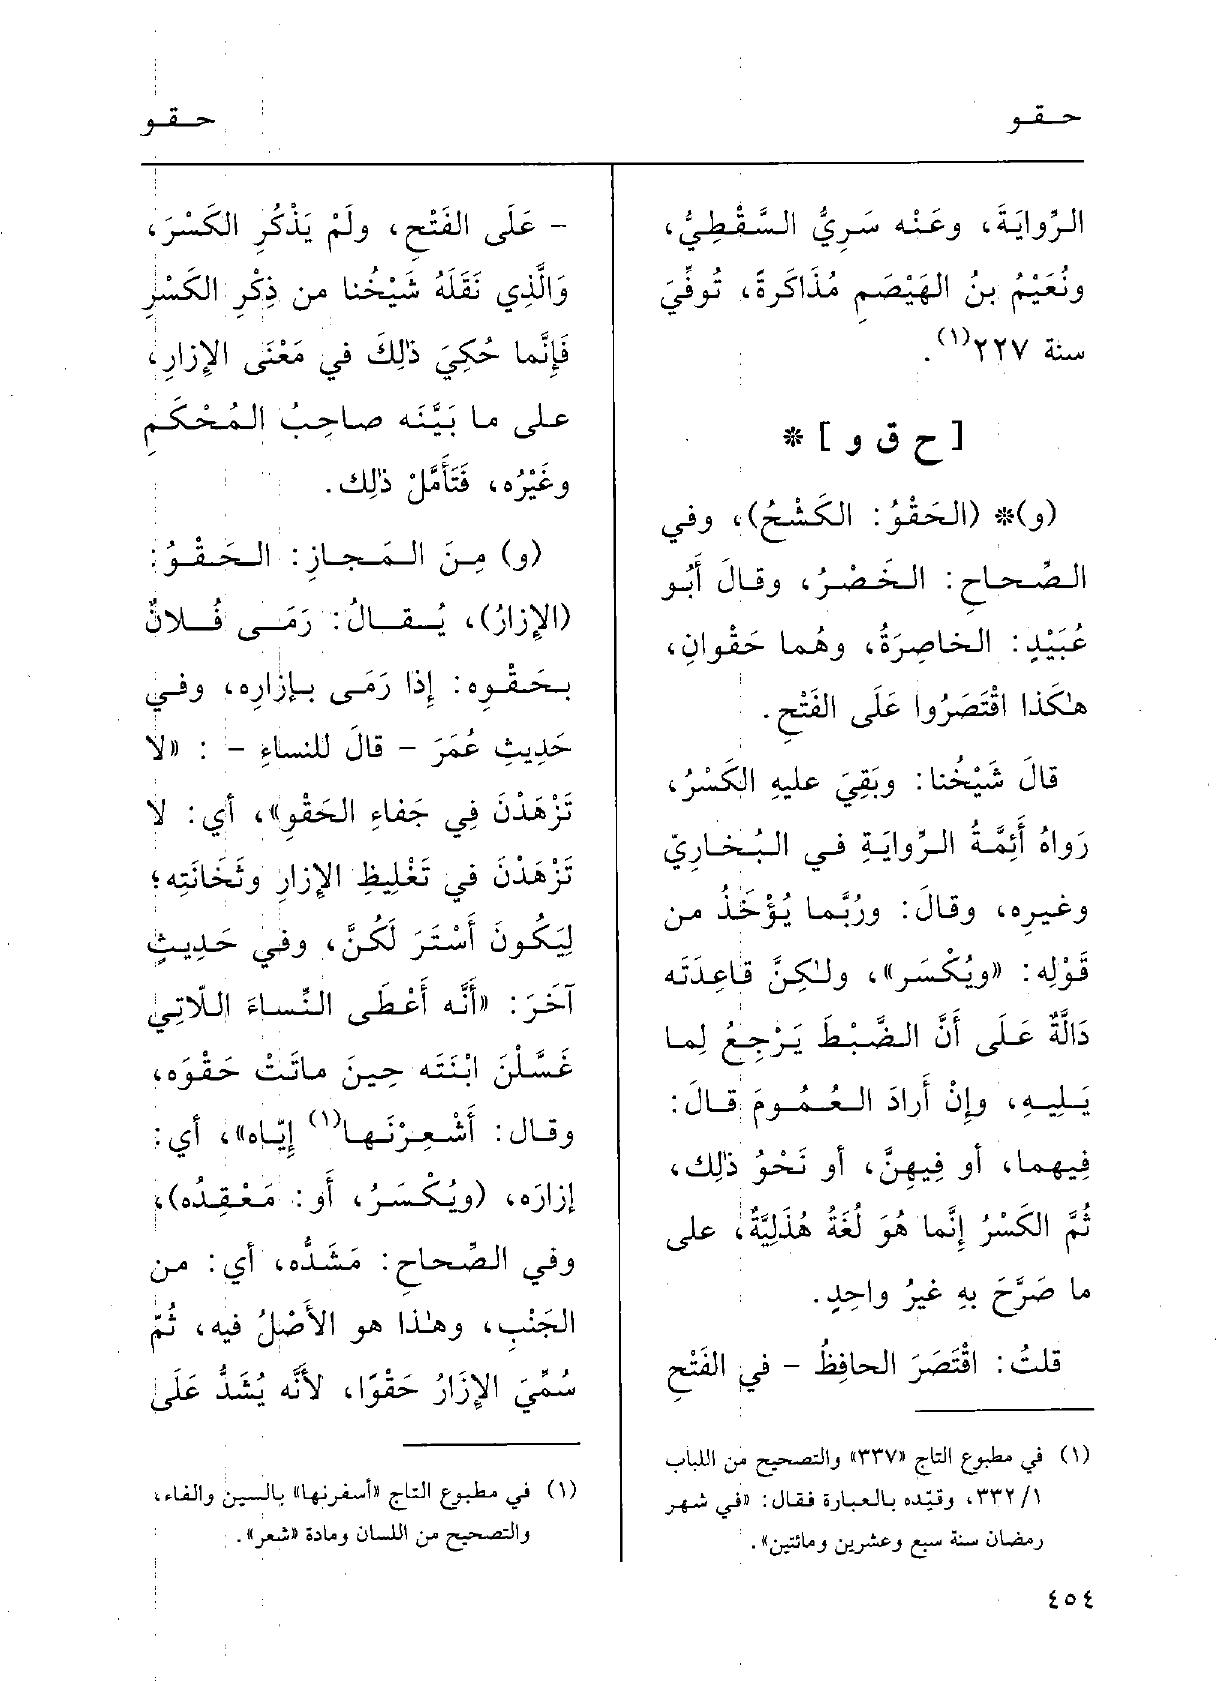 حـقـو
حـقـو
الرِّوايَةَ، وعَنْه سَرِيُّ السَّقْطِيُّ،
ونُعَيْمُ بنُ الهَيْصَمِ مُذَاكَرةً، تُوفِّيَ
سنة ٢٢٧(١).
[ ح ق و ] *
(و)* (الحَقْوُ: الكَشْحُ)، وفي
الصِّحاحِ: الخَصْرُ، وقالَ أَبُو
عُبَيْدٍ: الخاصِرَةُ، وهُما حَقْوانِ،
هٰكَذا اقْتَصَرُوا عَلَى الفَتْحِ.
قالَ شَيْخُنا: وبَقِيَ عليهِ الكَسْرُ،
رَواهُ أَئِمَّةُ الرِّوايَةِ في البُخارِيّ
وغيرِه، وقالَ: ورُبَّما يُؤْخَذُ من
قَوْلِه: «ويُكْسَر»، ولٰكِنَّ قاعِدَتَه
دَالَّةٌ عَلَى أَنَّ الضَّبْطَ يَرْجِعُ لِما
يَلِيهِ، وإِنْ أَرادَ العُمُومَ قالَ:
فِيهِما، أو فِيهِنَّ، أو نَحْوُ ذٰلِك،
ثُمَّ الكَسْرُ إِنَّما هُوَ لُغَةُ هُذَلِيَّةٌ، على
ما صَرَّحَ بهِ غيرُ واحِدٍ.
قلتُ: اقْتَصَرَ الحافِظُ – في الفَتْحِ
(١) في مطبوع التاج «٣٣٧» والتصحيح من اللباب
٣٣٢/١، وقيّده بالعبارة فقال: «في شهر
رمضان سنة سبع وعشرين ومائتين».
– عَلَى الفَتْحِ، ولَمْ يَذْكُرِ الكَسْرَ،
وَالَّذِي نَقَلَهُ شَيْخُنا من ذِكْرِ الكَسْرِ
فَإِنَّما حُكِيَ ذٰلِكَ في مَعْنَى الإِزارِ،
على ما بَيَّنَه صاحِبُ المُحْكَمِ
وغَيْرُه، فَتَأَمَّلْ ذٰلِك.
(و) مِنَ المَجازِ: الحَقْوُ:
(الإِزارُ)، يُقالُ: رَمَى فُلانٌ
بحَقْوِه: إِذا رَمَى بإِزارِه، وفي
حَدِيثِ عُمَرَ – قالَ للنساءِ – : «لا
تَزْهَدْنَ فِي جَفاءِ الحَقْوِ»، أي: لا
تَزْهَدْنَ في تَغْلِيظِ الإِزارِ وثَخَانَتِه؛
لِيَكُونَ أَسْتَرَ لَكُنَّ، وفي حَدِيثٍ
آخَرَ: «أَنَّه أَعْطَى النِّساءَ اللّاتِي
غَسَّلْنَ ابْنَتَه حِينَ ماتَتْ حَقْوَه،
وقال: أَشْعِرْنَها(١) إِيّاه»، أي:
إزارَه، (ويُكْسَرُ، أو: مَعْقِدُه)،
وفي الصِّحاحِ: مَشَدُّه، أي: من
الجَنْبِ، وهٰذا هو الأَصْلُ فيه، ثُمّ
سُمِّيَ الإِزَارُ حَقْوًا، لأَنَّه يُشَدُّ عَلَى
(١) في مطبوع التاج «أسفرنها» بالسين والفاء،
والتصحيح من اللسان ومادة «شعر».
٤٥٤